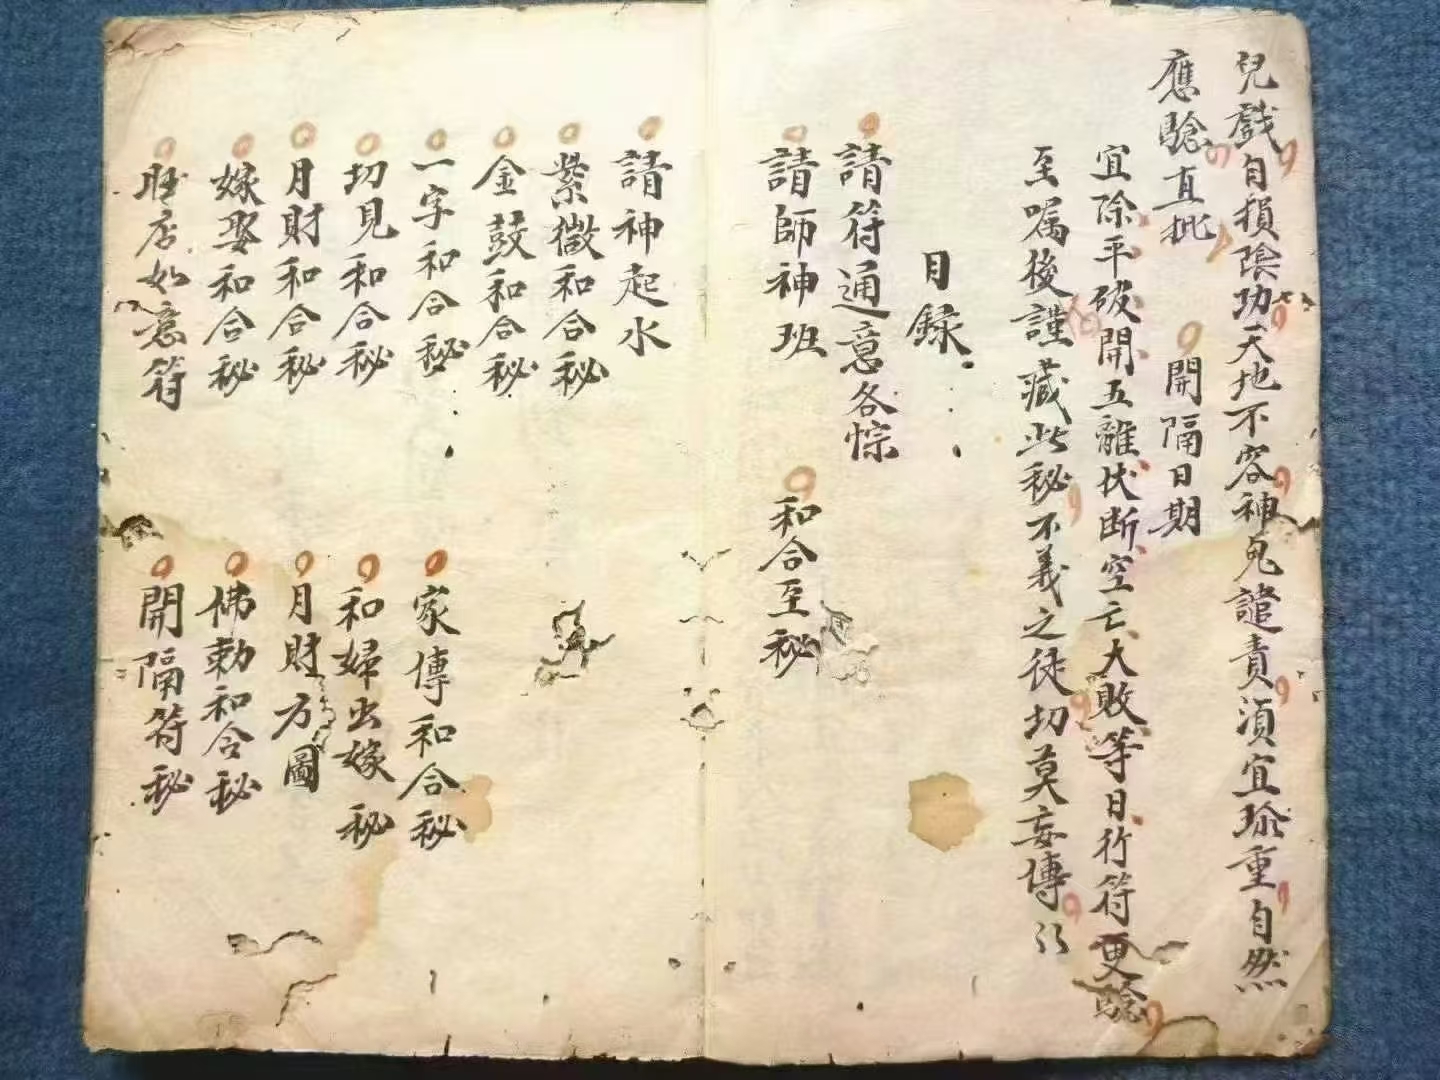 兒戲自損陰功天地不容神鬼譴責須宜珍重自然
應驗直批
開隔日期
宜除平破開五離伏断空亡大敗等日行符更驗
至嘱後謹藏此秘不義之徒切莫妄傳
目錄
請符通意各悰
請師神班
和合至秘
請神起水
紫微和合秘
金鼓和合秘
一字和合秘
家傳和合秘
切見和合秘
和婦出嫁秘
月財和合秘
月財方圖
嫁娶和合秘
佛勅和合秘
店如意符
開隔符秘